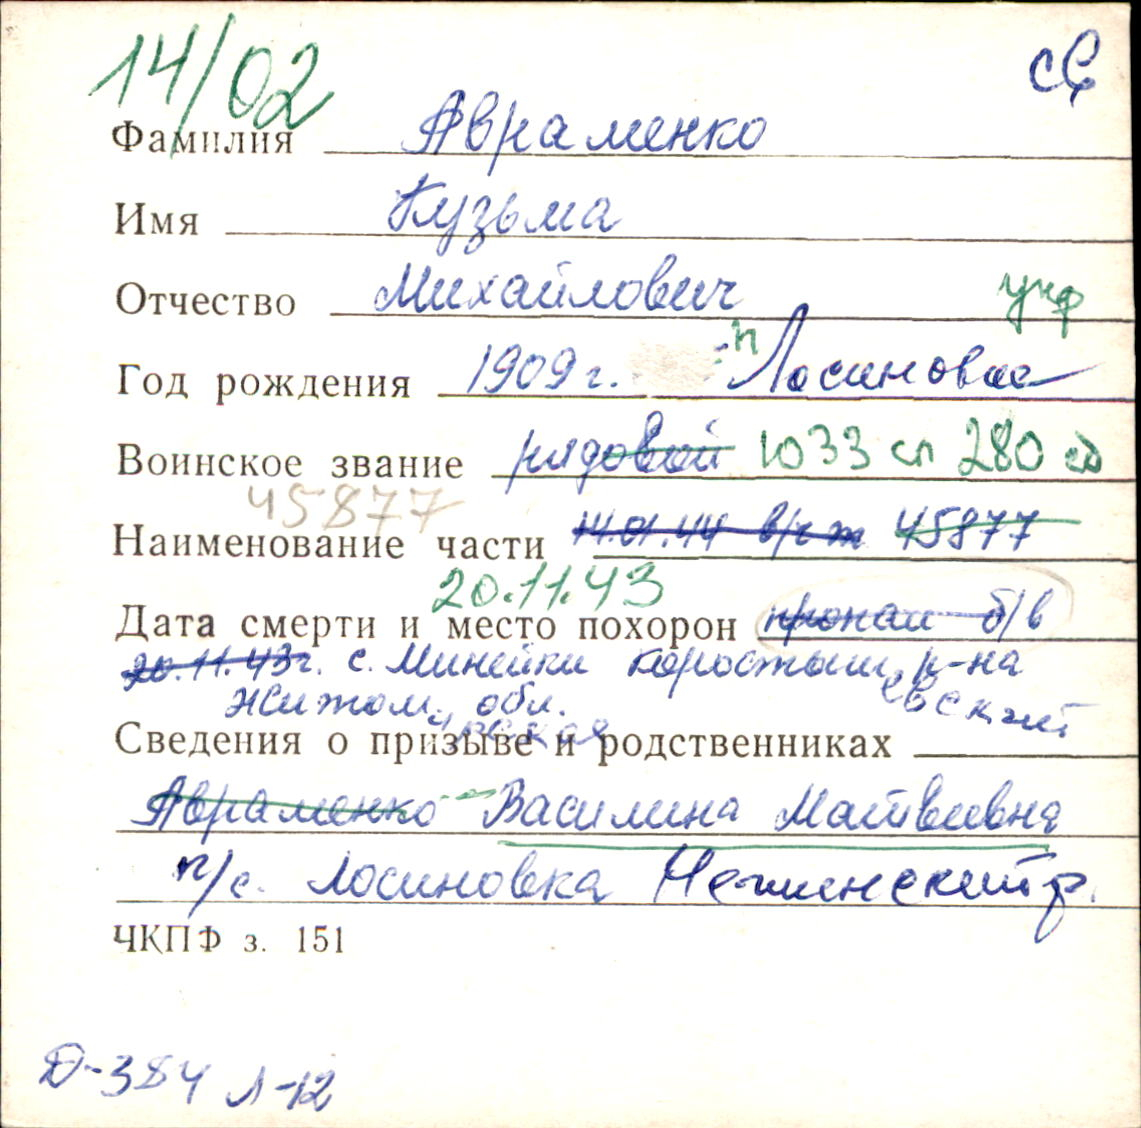 14/02
Фамилия Авраменко
Имя Кузьма
Отчество Михайлович
Год рождения 1909 г. п Лосиновка
Воинское звание рядовой 1033 сп 280 сд
45877
Наименование части 14.01.44 в/ч 45877
20.11.43
Дата смерти и место похорон пропал б/в
20.11.43г. с. Минейки Коростышевский р-на
Житомирская обл.
Сведения о призыве и родственниках
Авраменко Василина Матвеевна
п/с. Лосиновка Нежинский р.
ЧКПФ з. 151
Д-384 Л-12